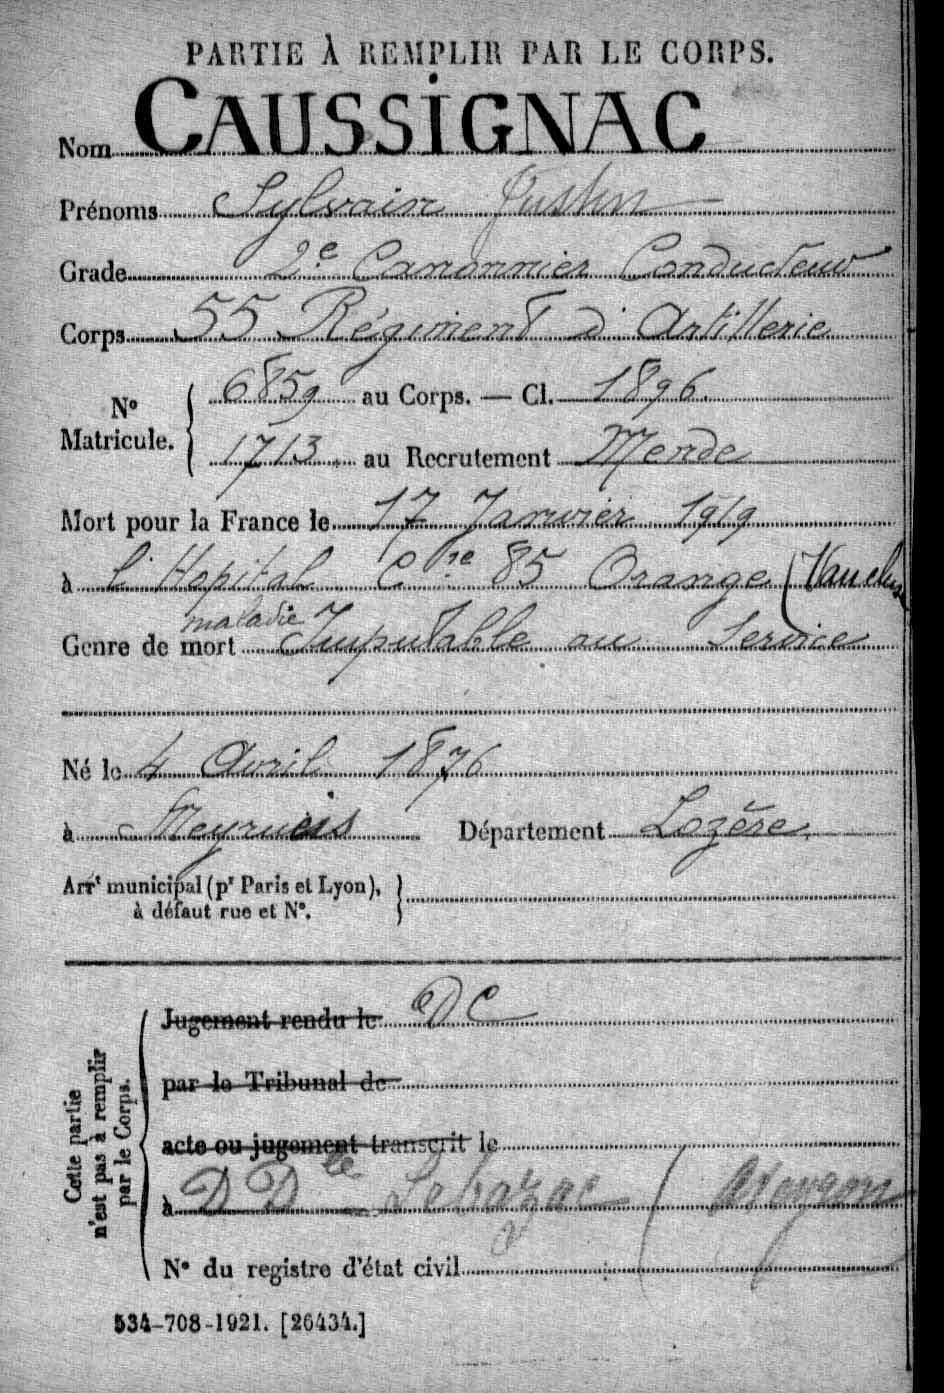 PARTIE À REMPLIR PAR LE CORPS.
Nom CAUSSIGNAC
Prénoms Sylvain Justin
Grade 2e Canonnier Conducteur
Corps 55 Régiment d'Artillerie
No Matricule. { 6859 au Corps. — Cl. 1896.
1713. au Recrutement Mende
Mort pour la France le 17 Janvier 1919
à l'Hopital Cre 85 Orange (Vaucluse
maladie
Genre de mort Imputable au Service
Né le 4 Avril 1876
à Meyrueis Département Lozère.
Arrt municipal (pr Paris et Lyon), }
à défaut rue et No.
Cette partie n'est pas à remplir par le Corps.
Jugement rendu le DC
par le Tribunal de
acte ou jugement transcrit le
à DD le Lebazac (Aveyron
No du registre d'état civil
534-708-1921. [26434.]